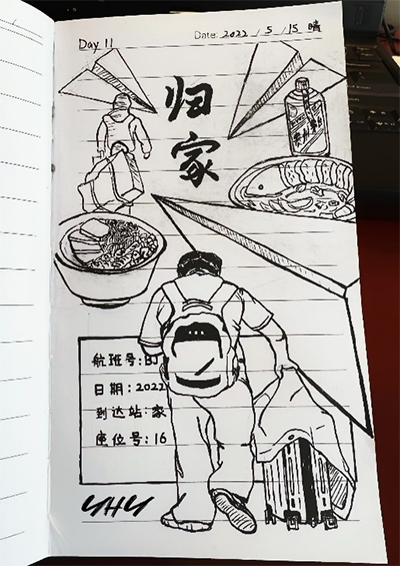 Day 11
Date: 2022 / 5 / 15 晴
归
家
航班号:BJ
日期:2022
到达站:家
座位号:16
YHY